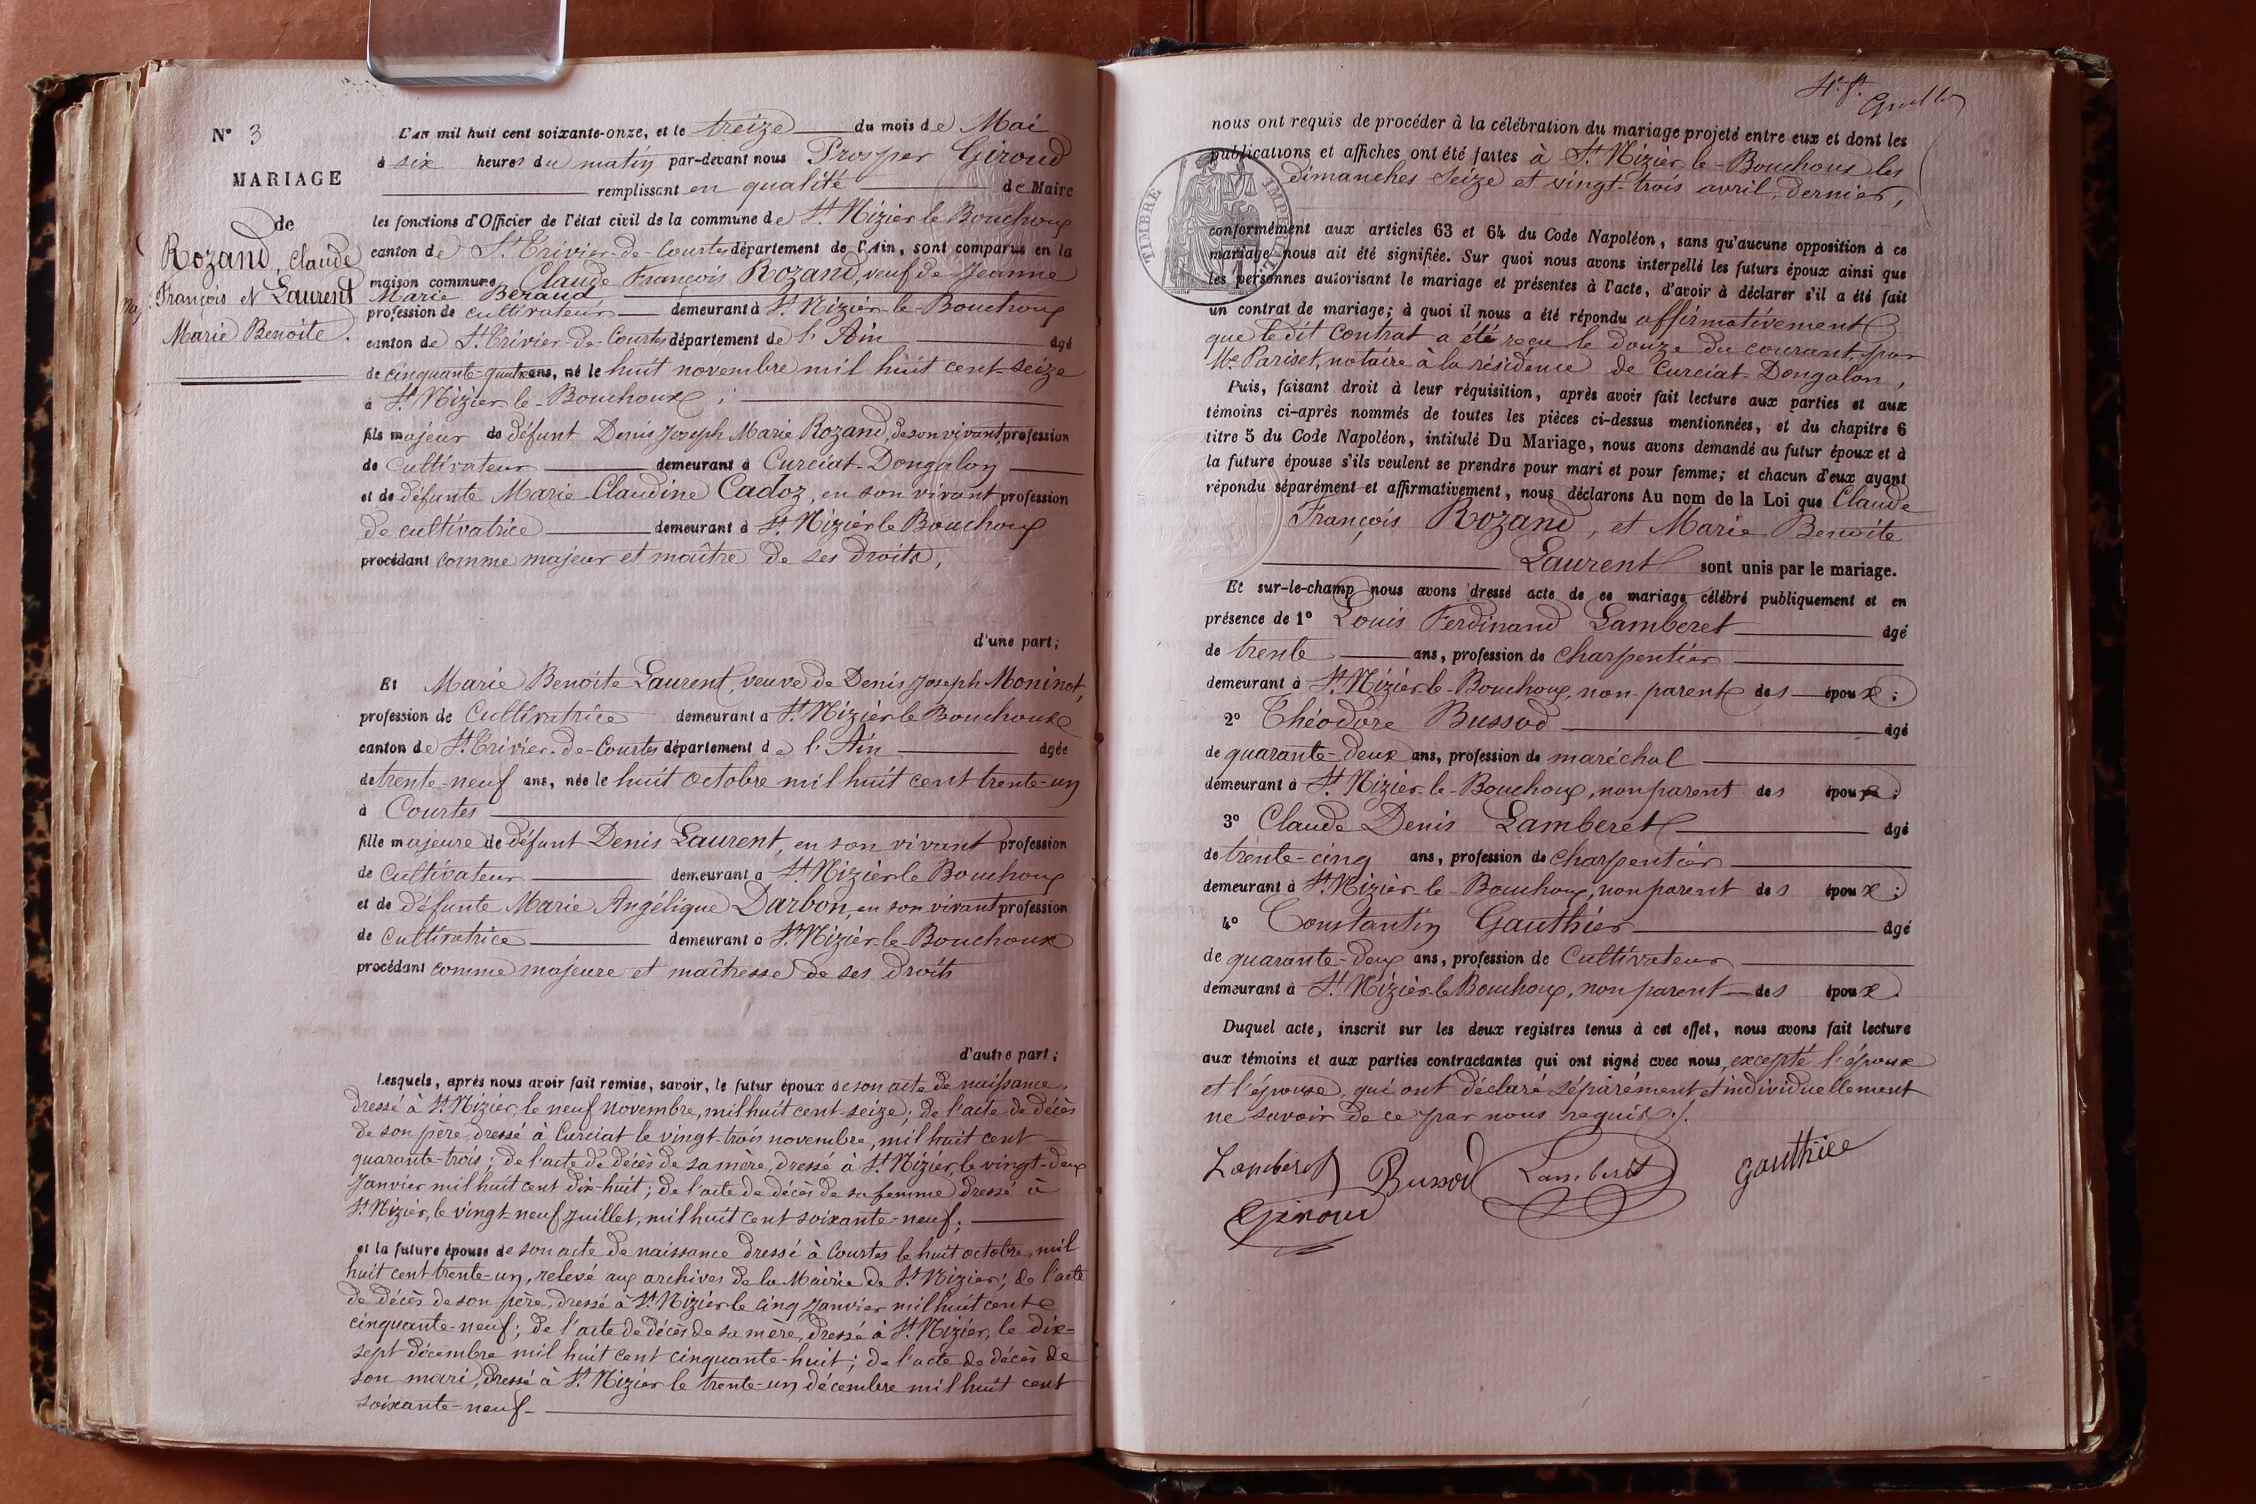 N° 3
MARIAGE
de
Rozand, Claude
François et Laurent
Marie Benoite.
L'an mil huit cent soixante-onze, et le treize du mois de Mai
à six heures du matin par-devant nous Prosper Giroud
remplissant en qualité de Maire
les fonctions d'Officier de l'état civil de la commune de St Nizier le Bouchoux
canton de St Trivier-de-Courtes département de l'Ain, sont comparus en la
maison commune Claude François Rozand, veuf de Jeanne
Marie Beraud,
profession de cultivateur demeurant à St Nizier-le-Bouchoux
canton de St Trivier-de-Courtes département de l'Ain âgé
de cinquante-quatre ans, né le huit novembre mil huit cent-seize
à St Nizier-le-Bouchoux ;
fils majeur de défunt Denis Joseph Marie Rozand, de son vivant profession
de cultivateur demeurant à Curciat-Dongalon
et de défunte Marie Claudine Cadoz, en son vivant profession
de cultivatrice demeurant à St Nizier le Bouchoux
procédant comme majeur et maître de ses droits,
d'une part ;
Et Marie Benoite Laurent, veuve de Denis Joseph Moninot,
profession de Cultivatrice demeurant à St Nizier le Bouchoux
canton de St Trivier-de-Courtes département de l'Ain âgée
de trente-neuf ans, née le huit octobre mil huit cent trente-un
à Courtes
fille majeure de défunt Denis Laurent, en son vivant profession
de Cultivateur demeurant à St Nizier le Bouchoux
et de défunte Marie Angélique Darbon, en son vivant profession
de Cultivatrice demeurant à St Nizier-le-Bouchoux
procédant comme majeure et maîtresse de ses droits
d'autre part ;
Lesquels, après nous avoir fait remise, savoir, le futur époux de son acte de naissance,
dressé à St Nizier, le neuf novembre, mil huit cent-seize ; de l'acte de décès
de son père, dressé à Curciat le vingt-trois novembre, mil huit cent
quarante-trois ; de l'acte de décès de sa mère, dressé à St Nizier, le vingt-deux
Janvier mil huit cent dix-huit ; de l'acte de décès de sa femme dressé à
St Nizier, le vingt-neuf Juillet, mil huit cent soixante-neuf ;
et la future épouse de son acte de naissance dressé à Courtes le huit octobre, mil
huit cent trente-un, relevé aux archives de la Mairie de St Nizier ; de l'acte
de décès de son père, dressé à St Nizier le cinq Janvier mil huit cent
cinquante-neuf ; de l'acte de décès de sa mère, dressé à St Nizier, le dix-
sept décembre mil huit cent cinquante-huit ; de l'acte de décès de
son mari, dressé à St Nizier le trente-un décembre mil huit cent
soixante-neuf.
nous ont requis de procéder à la célébration du mariage projeté entre eux et dont les
publications et affiches ont été faites à St Nizier-le-Bouchoux les
dimanches Seize et vingt-trois avril, dernier,
TIMBRE IMPERIAL
conformément aux articles 63 et 64 du Code Napoléon, sans qu'aucune opposition à ce
mariage nous ait été signifiée. Sur quoi nous avons interpellé les futurs époux ainsi que
les personnes autorisant le mariage et présentes à l'acte, d'avoir à déclarer s'il a été fait
un contrat de mariage ; à quoi il nous a été répondu affirmativement
que le dit Contrat a été reçu le douze du courant, par
Me Pariset, notaire à la résidence de Curciat-Dongalon,
Puis, faisant droit à leur réquisition, après avoir fait lecture aux parties et aux
témoins ci-après nommés de toutes les pièces ci-dessus mentionnées, et du chapitre 6
titre 5 du Code Napoléon, intitulé Du Mariage, nous avons demandé au futur époux et à
la future épouse s'ils veulent se prendre pour mari et pour femme ; et chacun d'eux ayant
répondu séparément et affirmativement, nous déclarons Au nom de la Loi que Claude
François Rozand, et Marie Benoite
Laurent sont unis par le mariage.
Et sur-le-champ nous avons dressé acte de ce mariage célébré publiquement et en
présence de 1° Louis Ferdinand Lamberet âgé
de trente ans, profession de charpentier
demeurant à St Nizier-le-Bouchoux, non parent des époux ;
2° Théodore Bussod âgé
de quarante-deux ans, profession de maréchal
demeurant à St Nizier-le-Bouchoux, non parent des époux ;
3° Claude Denis Lamberet âgé
de trente-cinq ans, profession de charpentier
demeurant à St Nizier-le-Bouchoux, non parent des époux ;
4° Constantin Gauthier âgé
de quarante-deux ans, profession de Cultivateur
demeurant à St Nizier-le-Bouchoux, non parent des époux.
Duquel acte, inscrit sur les deux registres tenus à cet effet, nous avons fait lecture
aux témoins et aux parties contractantes qui ont signé avec nous, excepté l'époux
et l'épouse, qui ont déclaré séparément et individuellement
ne savoir de ce par nous requis./.
Lamberet Bussod Lamberet Gauthier
Giroud